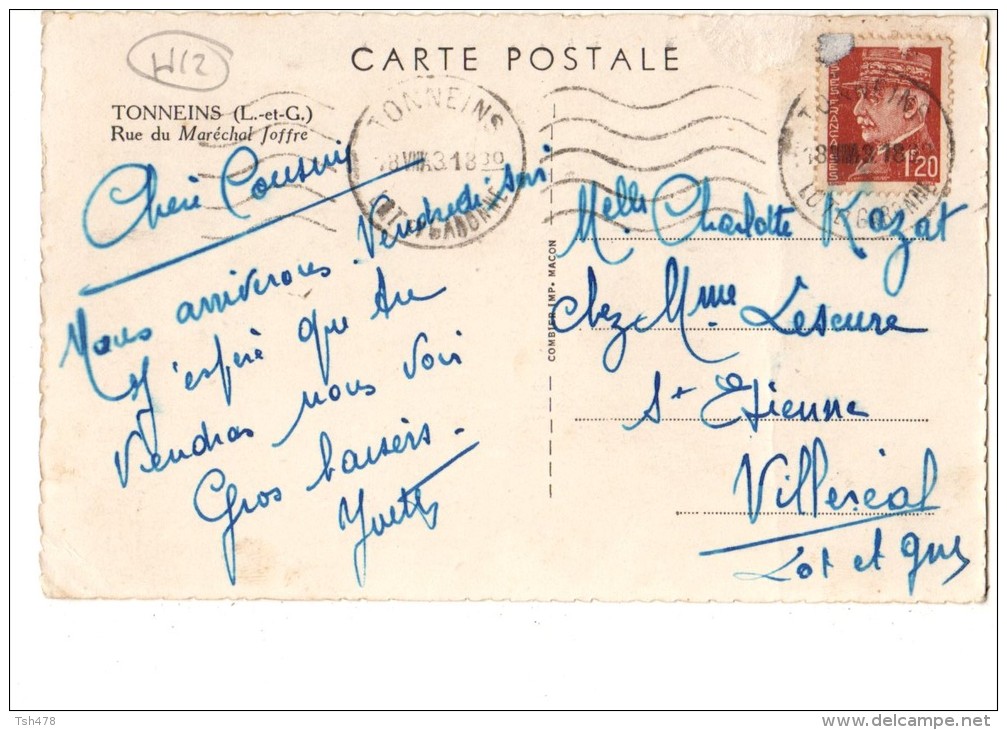 W12
CARTE POSTALE
TONNEINS (L.-et-G.)
Rue du Maréchal Joffre
TONNEINS
18 30
LOT-ET-GARONNE
TONNEINS
LOT-ET-GARONNE
POSTES FRANÇAISES
1F20
Chère Cousine
Nous arriverons Vendredi soir
J'espère que tu
viendras nous voir
Gros baisers -
Yvette
COMBIER IMP. MACON
Melle Charlotte Kazat
chez Mme Lescure
St Etienne
Villeréal
Lot et Gne
Tsh478
www.delcampe.net